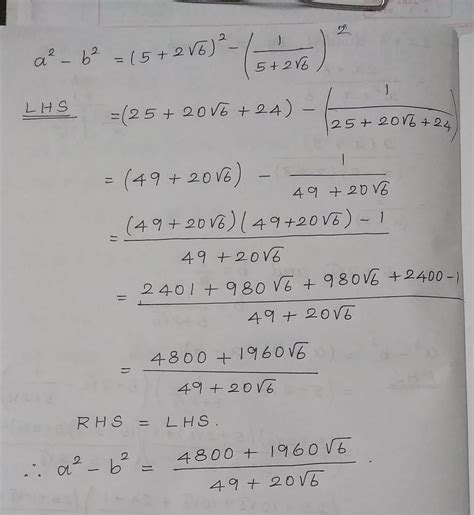 a² - b² = (5 + 2√6)² - (1/(5 + 2√6))²
LHS = (25 + 20√6 + 24) - (1/(25 + 20√6 + 24))
= (49 + 20√6) - 1/(49 + 20√6)
= ((49 + 20√6)(49 + 20√6) - 1)/(49 + 20√6)
= (2401 + 980√6 + 980√6 + 2400 - 1)/(49 + 20√6)
= (4800 + 1960√6)/(49 + 20√6)
RHS = LHS.
∴ a² - b² = (4800 + 1960√6)/(49 + 20√6).